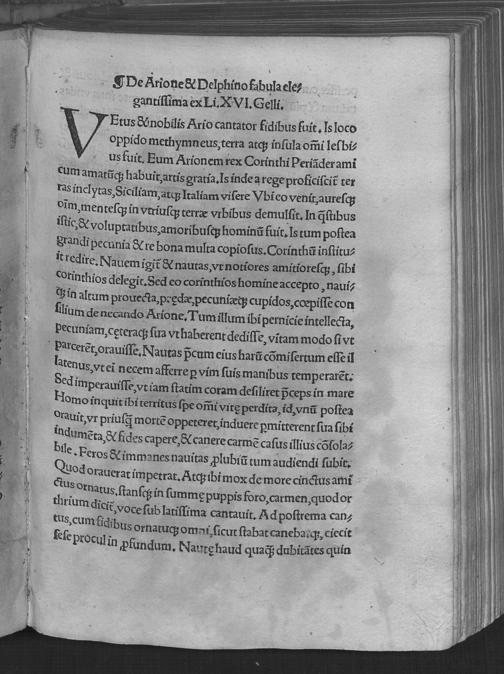 ¶De Arione & Delphino fabula ele⸗
gantissima ex Li.XVI. Gelli.
VEtus & nobilis Ario cantator fidibus fuit. Is loco
oppido methymneus, terra atq; insula om̄i lesbi⸗
us fuit. Eum Arionem rex Corinthi Periāder ami
cum amatūq; habuit, artis gratia. Is inde a rege proficiscit̄ ter
ras inclytas, Siciliam, atq; Italiam visere Vbi eo venit, auresq;
oīm, mentesq; in vtriusq; terræ vrbibus demulsit. In q̄stibus
istic, & voluptatibus, amoribusq; hominū fuit. Is tum postea
grandi pecunia & re bona multa copiosus. Corinthū institu⸗
it redire. Nauem igit̄ & nautas, vt notiores amitioresq, sibi
corinthios delegit. Sed eo corinthios homine accepto, naui⸗
q; in altum prouecta, prędæ, pecuniæq; cupidos, cœpisse con
silium de necando Arione. Tum illum ibi pernicie intellecta,
pecuniam, cęteraq; sua vt haberent dedisse, vitam modo si vt
parcerēt, orauisse. Nautas p̄cum eius harū cōmisertum esse il
latenus, vt ei necem afferre ꝑ vim suis manibus temperarēt.
Sed imperauisse, vt iam statim coram desiliret p̄ceps in mare
Homo inquit ibi territus spe om̄i vitę perdita, id, vnū postea
orauit, vt priusq̄ mortē oppeteret, induere ꝑmitterent sua sibi
indumēta, & fides capere, & canere carmē casus illius cōsola⸗
bile. Feros & immanes nauitas ꝓlubiū tum audiendi subit.
Quod orauerat impetrat. Atq; ibi mox de more cinctus ami
ctus ornatus. stansq; in summę puppis foro, carmen, quod or
thrium dicit̄, voce sublatissima cantauit. Ad postrema can⸗
tus, cum fidibus ornatuq; omni, sicut stabat canebatq;, eiecit
sese procul in ꝓfundum. Nautę haud quaq̄ dubitātes quin